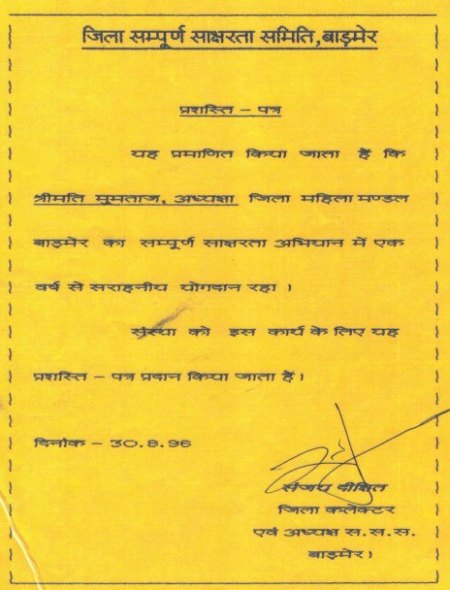 जिला सम्पूर्ण साक्षरता समिति,बाड़मेर
प्रशस्ति - पत्र
यह प्रमाणित किया जाता है कि
श्रीमति मूमताज, अध्यक्षा जिला महिला मण्डल
बाड़मेर का सम्पूर्ण साक्षरता अभियान में एक
वर्ष से सराहनीय योगदान रहा ।
संस्था को इस कार्य के लिए यह
प्रशस्ति - पत्र प्रदान किया जाता है।
दिनांक - 30.8.96
संजय दीक्षित
जिला कलेक्टर
एवं अध्यक्ष स.स.स.
बाड़मेर।